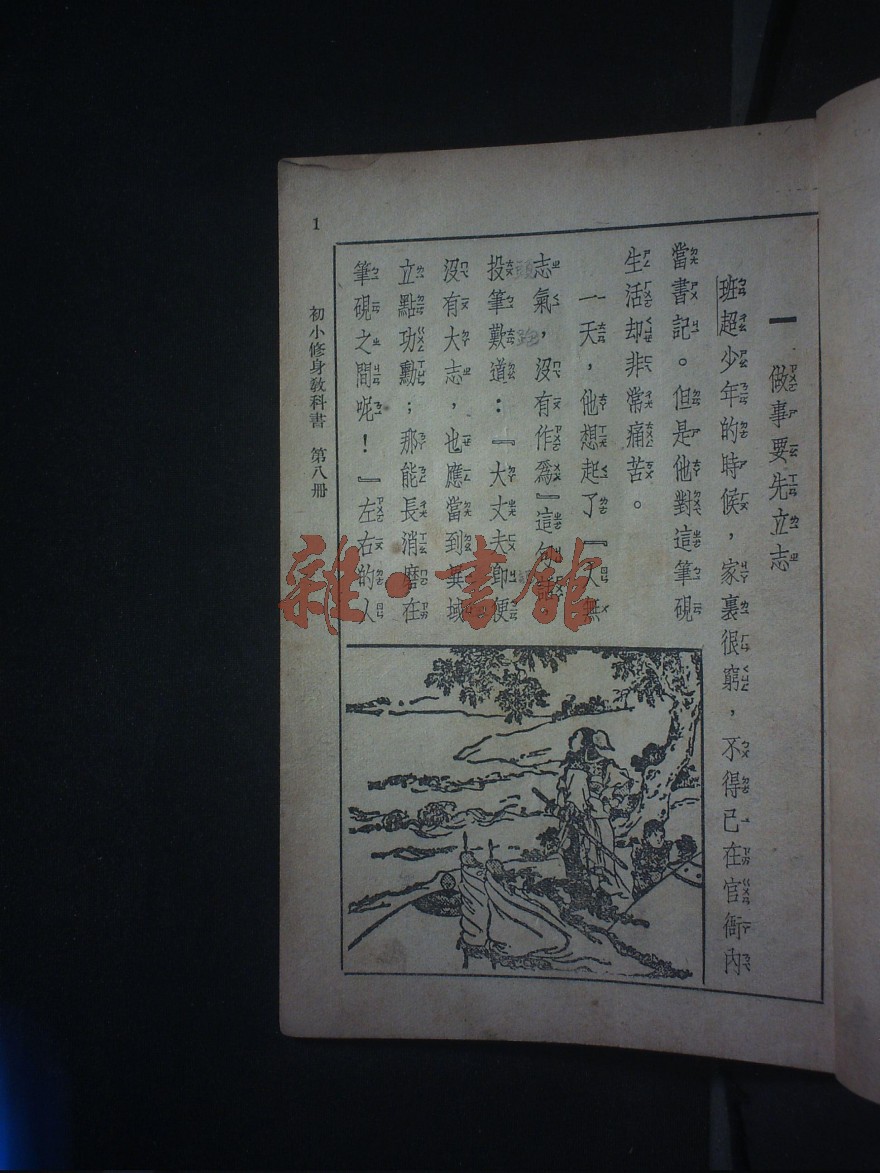 一　做事要先立志
班超少年的時候，家裏很窮，不得已在官衙內
當書記。但是他對這筆硯
生活却非常痛苦。
一天，他想起了『人無
志氣，沒有作爲』這句話
投筆歎道：『大丈夫即便
沒有大志，也應當到異域
立點功勳；那能長消磨在
筆硯之間呢！』左右的人
1
初小修身教科書　第八册
雜·書館